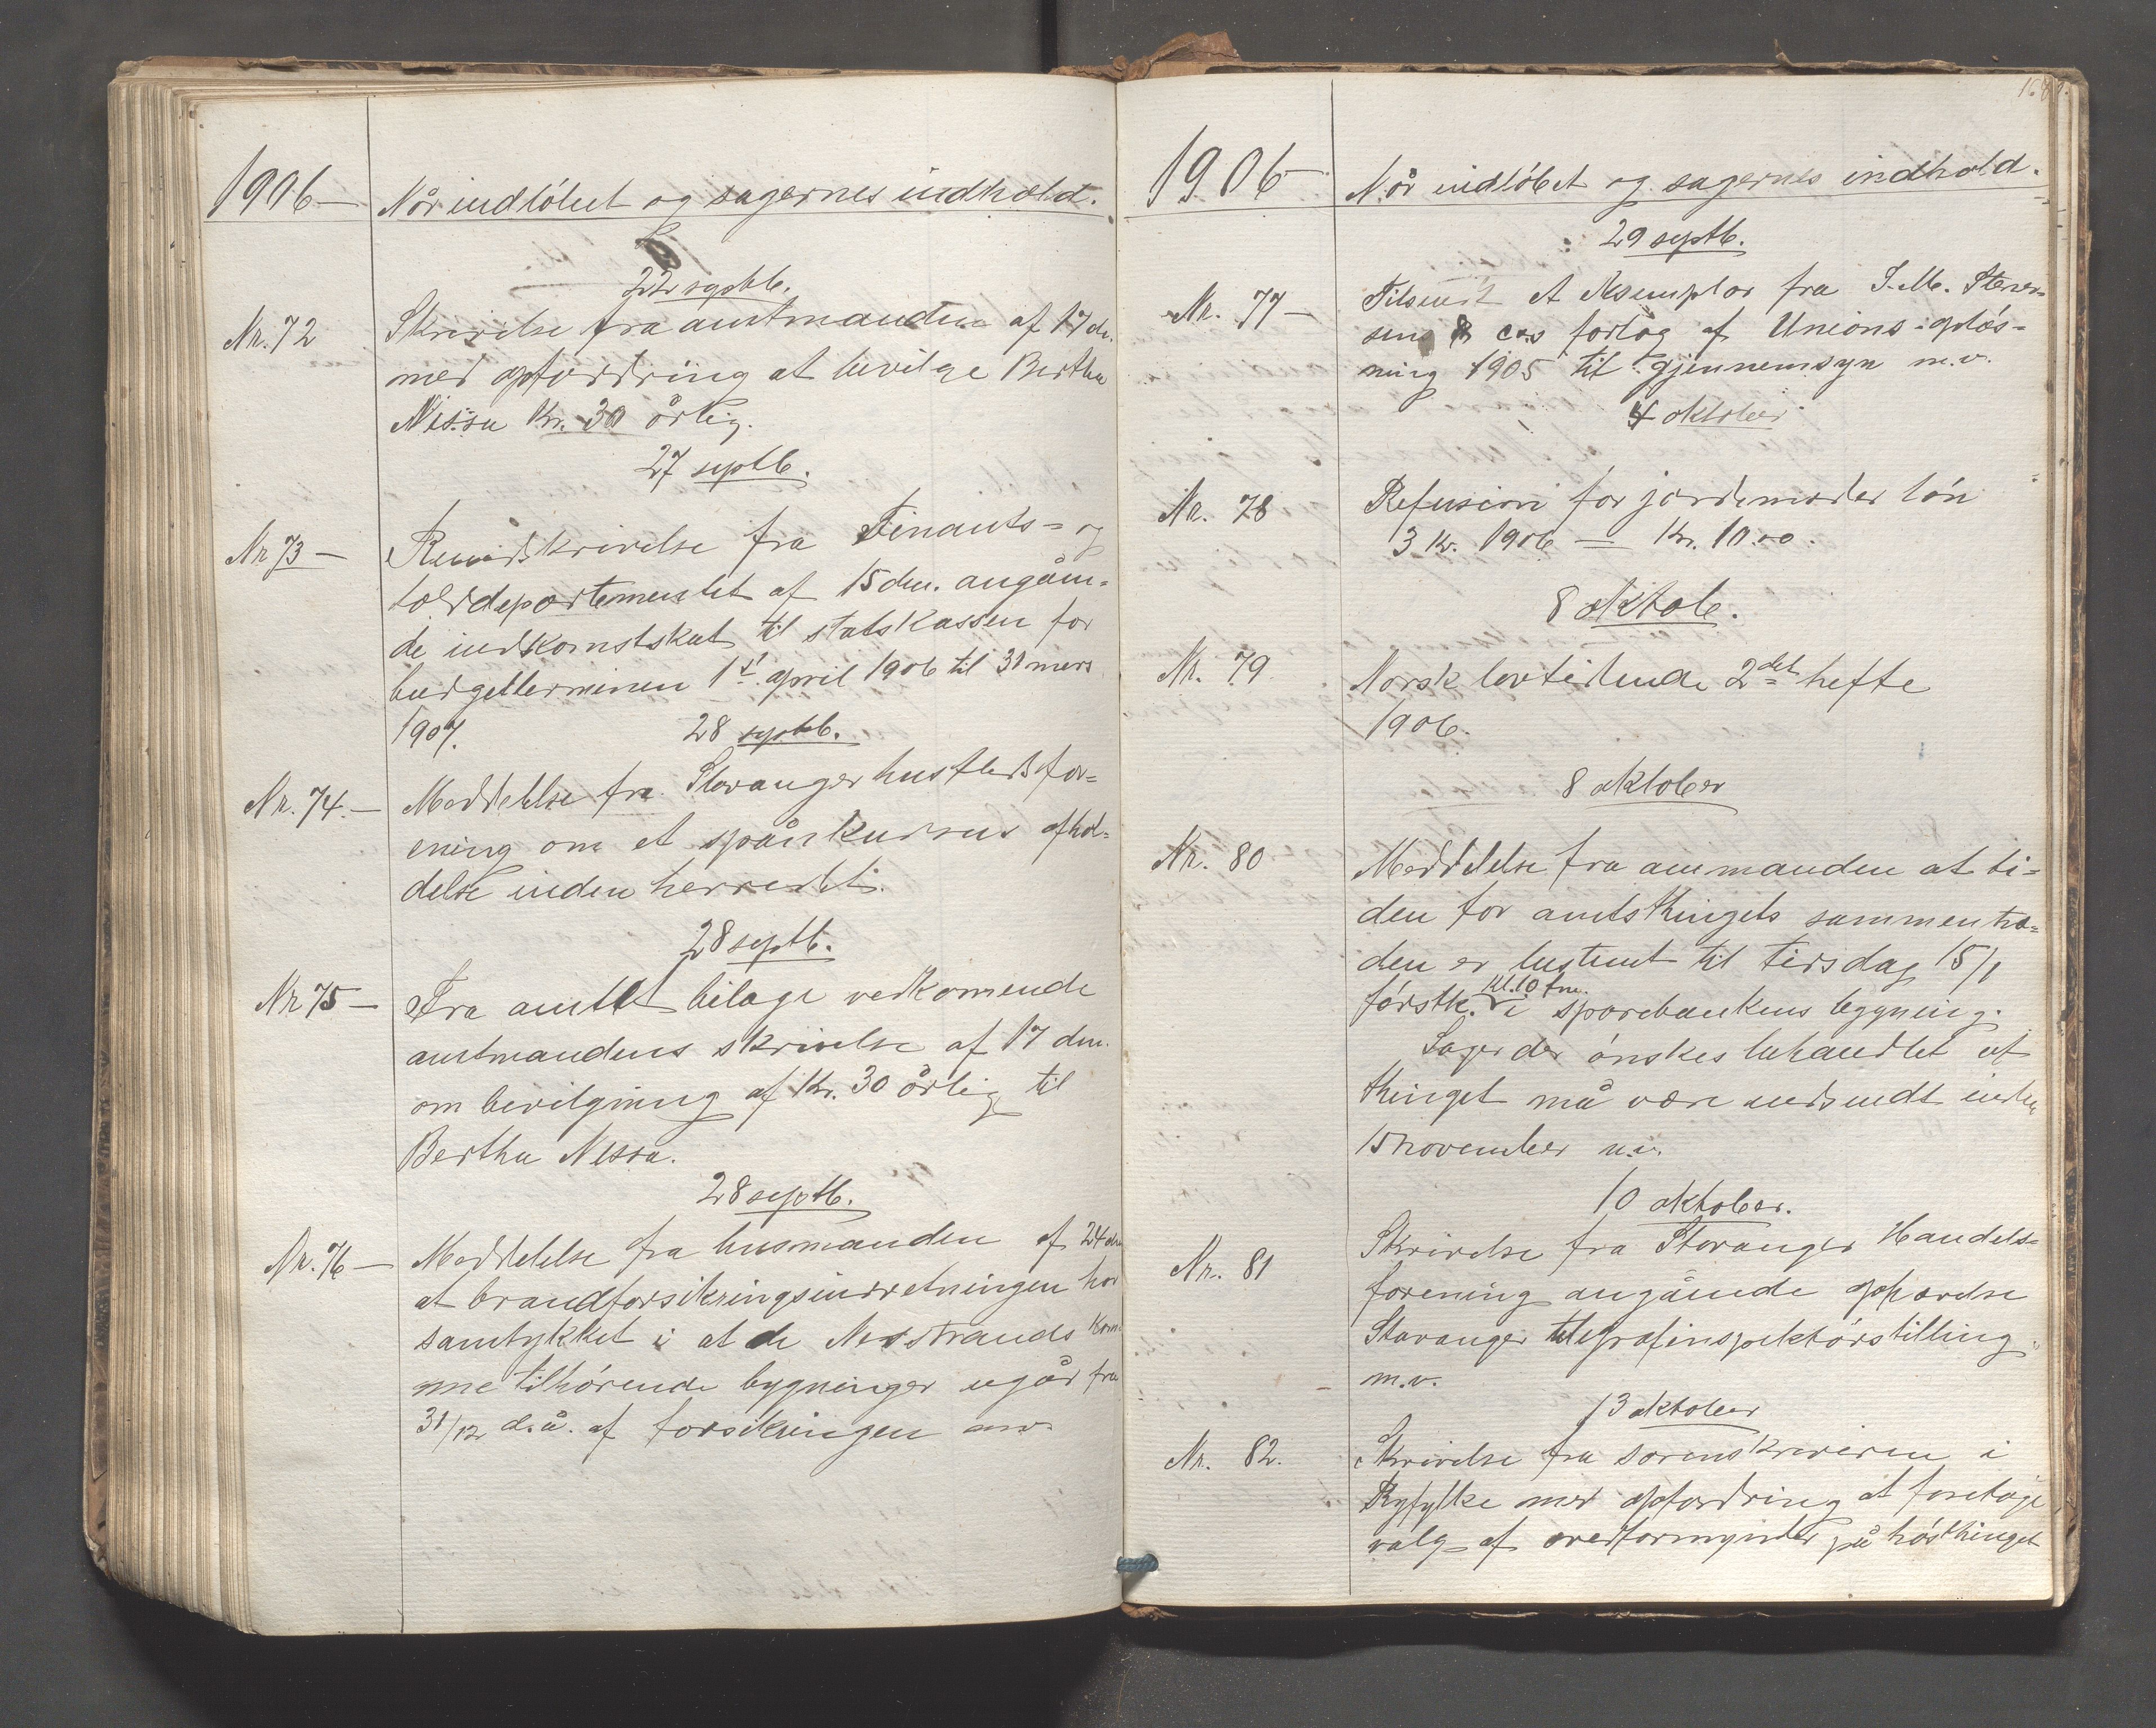 1906 — Når indlöbet og sagernes indhold.
22 septb.
Nr. 72 Skrivelse fra amtmanden af 17 ds.
med opfordring at bevilge Bertha
Nessa Kr. 30 årlig.
27 septb.
Nr 73 — Rundskrivelse fra Finants- og
tolddepartementet af 15 dm. angåen-
de indkomstskat til statskassen for
budgetterminen 1ste april 1906 til 31 mars
1907.
28 septb.
Nr. 74. — Meddelelse fra Stavanger husflidsfor-
ening om et spånkursus afhol-
delse inden herredet.
28 septb.
Nr 75 — Fra amtet bilage vedkomende
amtmandens skrivelse af 17 dm.
om bevilgning af Kr. 30 årlig til
Bertha Nessa.
28 septb.
Nr. 76 — Meddelelse fra lensmanden af 24 dm
at brandforsikringsindretningen har
samtykket i at de Nerstrands kom-
mne tilhörende bygninger ugår fra
31/12 d.å. af forsikringen mv.
168.
1906 — Når indlöbet og sagernes indhold.
29 septb.
Nr. 77 — Tilsendt et Aksemplar fra J. M. Stener-
sens & co.s forlag af Unions-oplös-
ning 1905 til gjennemsyn m.v.
4 oktober
Nr. 78 Refusion for jordemoder lön
3 Kv. 1906 — Kr. 10.00.
8 oktob.
Nr. 79. Norsk lovtidende 2det hefte
1906.
8 oktober
Nr. 80 Meddelelse fra ammanden at ti-
den for amtsthingets sammentræ-
den er bestemt til tirsdag 15/1
förstk. kl. 10 fm. i sparebankens bygning.
Sager der önskes behandlet af
thinget må være indsendt inden
15 november n.v.
10 oktober.
Nr. 81 Skrivelse fra Stavanger Handels-
forening angående ophævelse
Stavanger telegrafinspektörstilling
m.v.
13 oktober
Nr. 82. Skrivelse fra sorenskriveren i
Ryfylke med opfordring at foretage
valg af overformynder på hösthinget